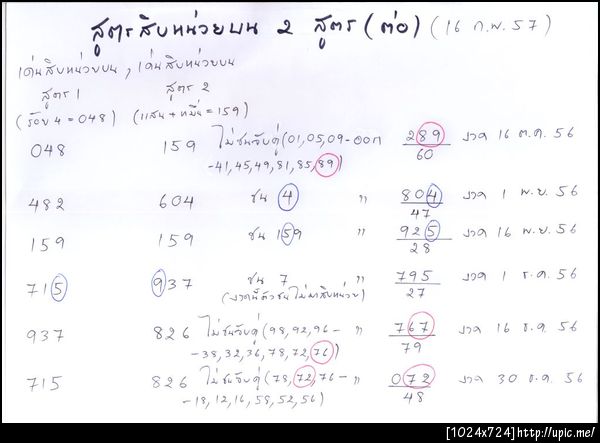 สูตรสิบหน่วยบน 2 สูตร (ต่อ) (16 ก.พ. 57)
เด่นสิบหน่วยบน , เด่นสิบหน่วยบน
สูตร 1 สูตร 2
(ร้อย 4 = 048) (แสน + หมื่น = 159)
048 159 ไม่ชนจับคู่ (01,05,09-ออก 289 งวด 16 ต.ค. 56
-41,45,49,81,85,89) 60
482 604 ชน 4 " 804 งวด 1 พ.ย. 56
47
159 159 ชน 159 " 925 งวด 16 พ.ย. 56
28
715 937 ชน 7 " 795 งวด 1 ธ.ค. 56
(งวดนี้ตัวชนไม่มาสิบหน่วย) 27
937 826 ไม่ชนจับคู่ (98,92,96- " 767 งวด 16 ธ.ค. 56
-38,32,36,78,72,76) 79
715 826 ไม่ชนจับคู่ (78,72,76- " 072 งวด 30 ธ.ค. 56
-18,12,16,58,52,56) 48
[1024x724]http://upic.me/